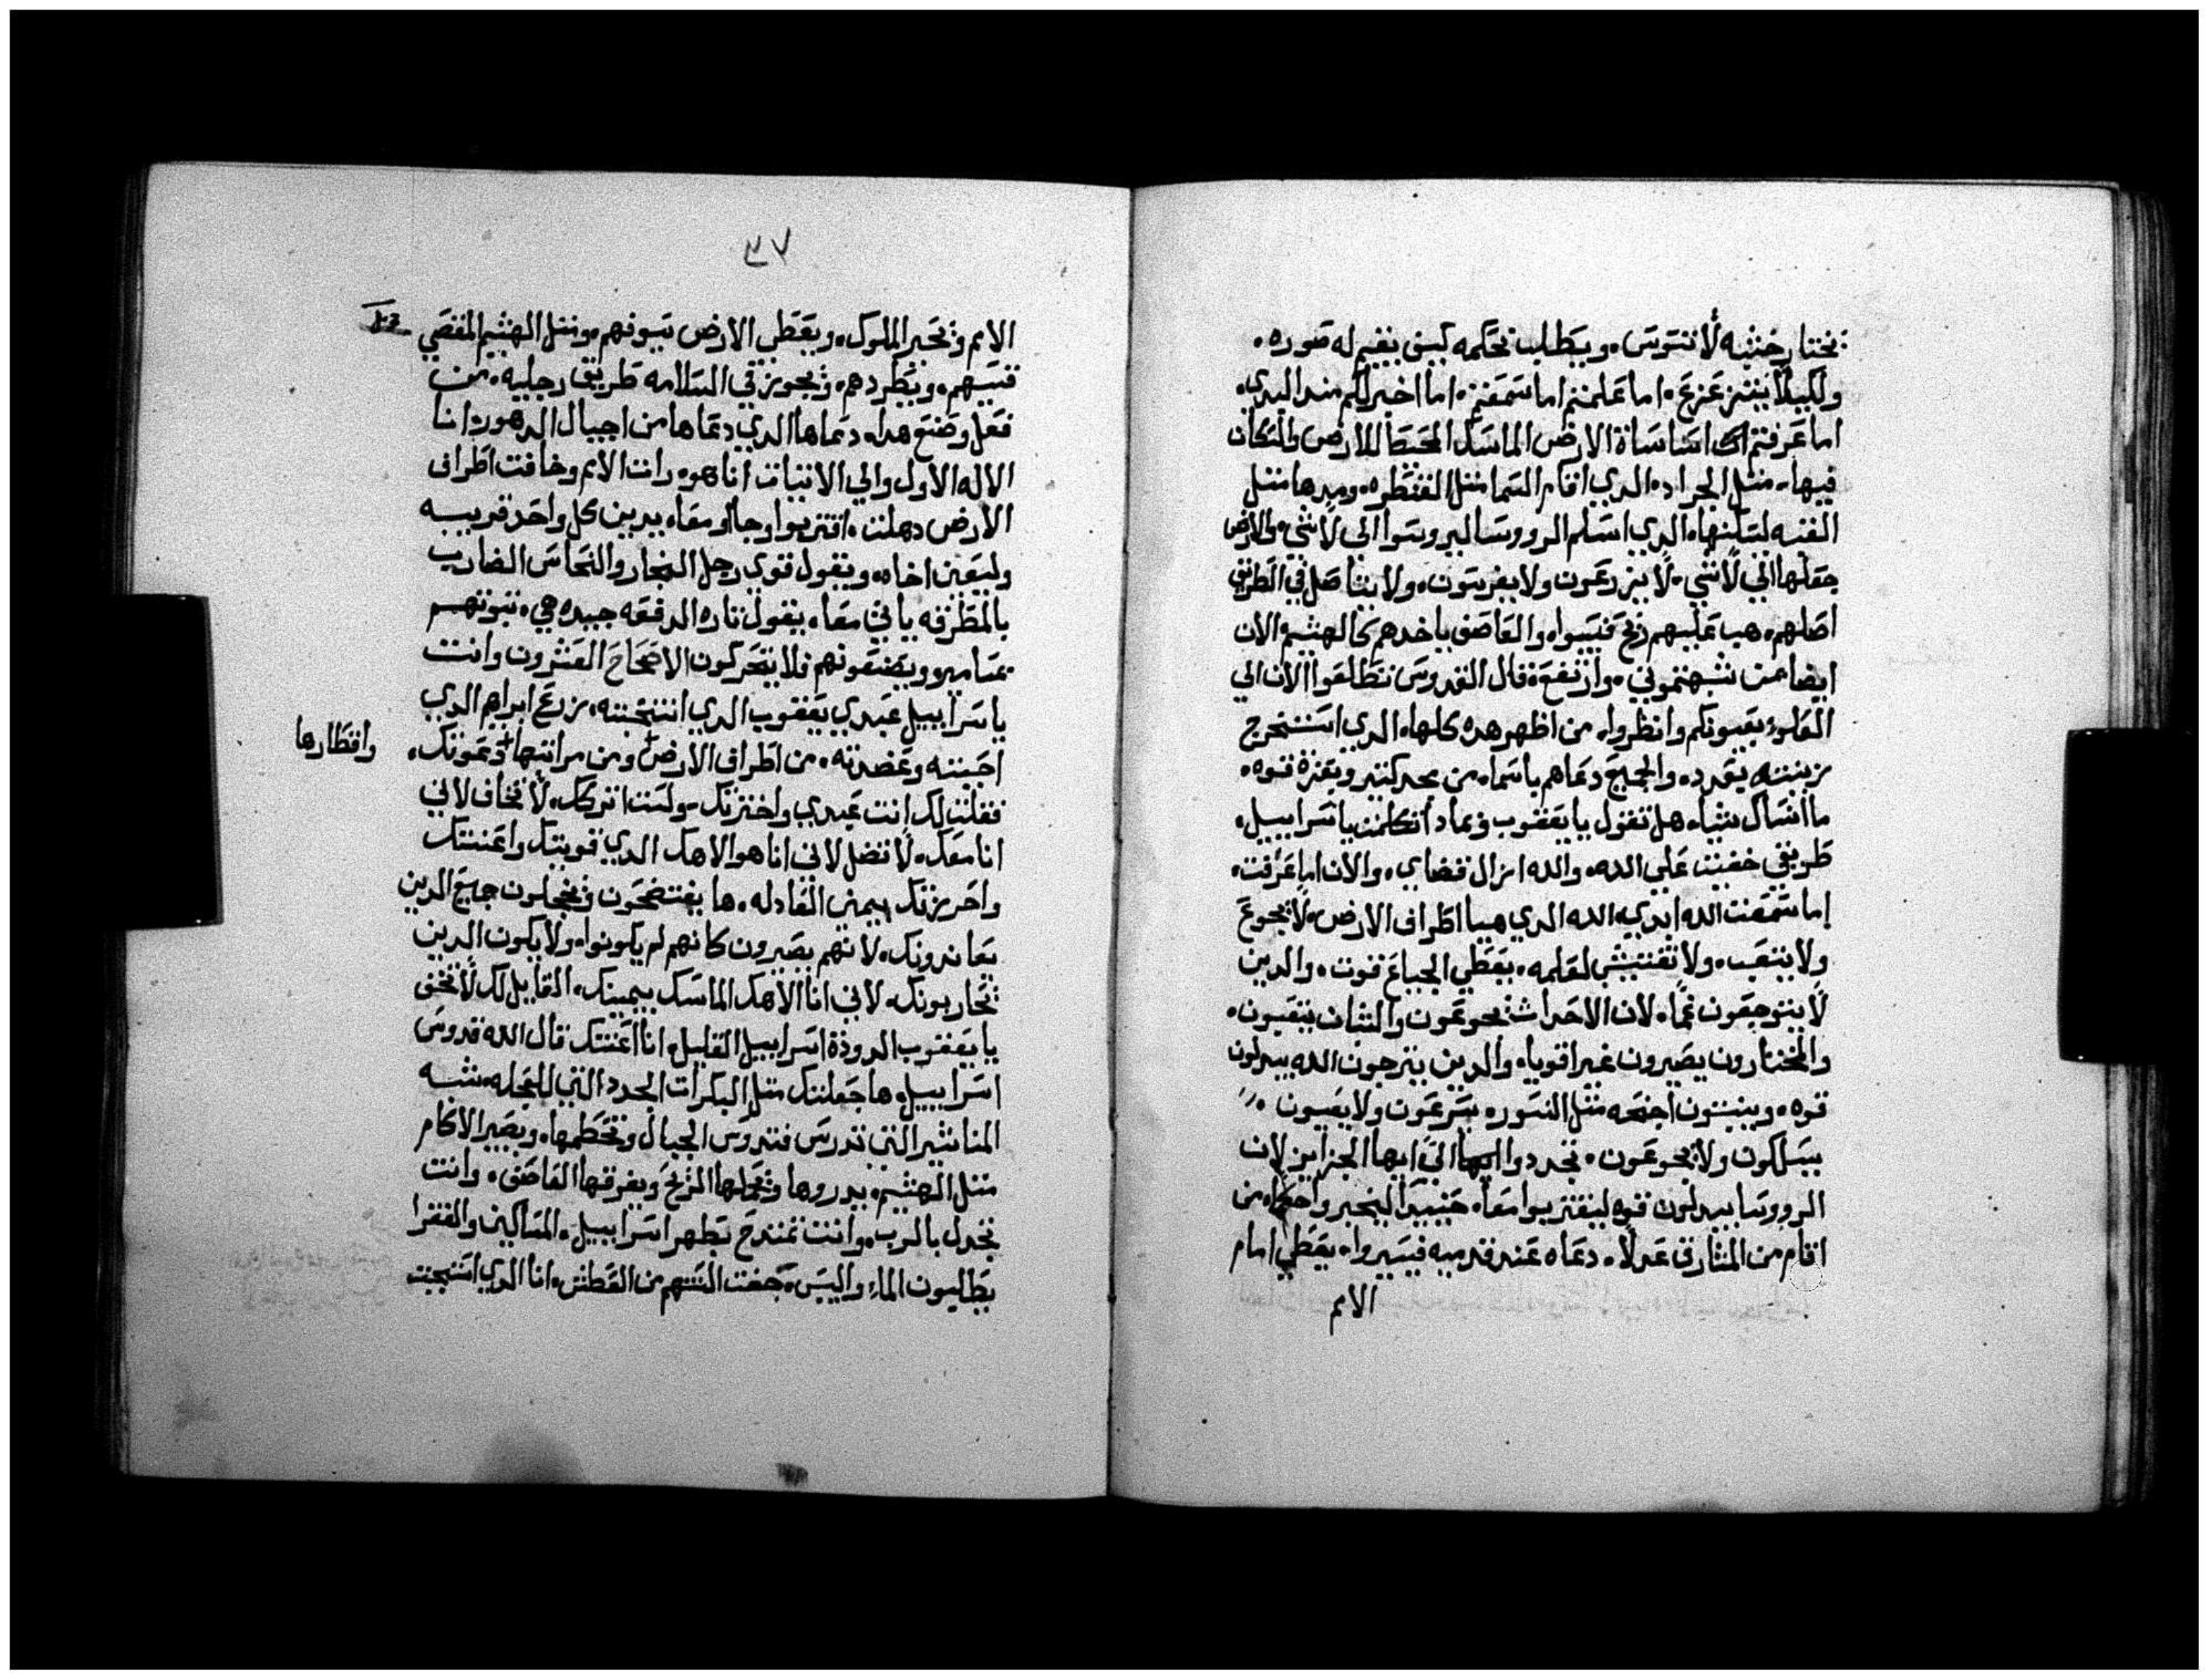 نختار خشبه لا تسوس. ويطلب بحكمه كيف يقيم له صوره.
ولكيلا يتزعزع. اما علمتم اما سمعتم. اما اخبرلكم منذ البدي.
اما عرفتم اساسات الارض الماسك المحيط للارض والسكان
فيها. متل الجراد. الدي اقام السما متل القنطره. ومدها متل
القبه لسكنها. الدي اسلم الروسا ليروسوا الي لا شي. والارض
جعلها الي لا شي. لا يزرعون ولا يغرسون. ولا يتاصل في الطريق
اصلهم. هب عليهم ريح فيبسوا. والعاصف ياخدهم كالهشيم الان
ايضا بمن شبهتموني. وارتفع. قال القدوس تطلعوا الان الي
العلو. بعيونكم وانظروا. من اظهر هده كلها. الدي استخرج
زينته بعدد. والجميع دعاهم باسما. من مجد كتير وبعزة قوه.
ما انساك شيا. هل تقول يا يعقوب ومادا تكلمت يا سراييل.
طريقي خفيت علي الله. والله ازال قضاي. والان اما عرفت.
اما سمعت الله ابدي. الله الدي هيا اطراف الارض. لا يجوع
ولا يتعب. ولا تفتيش لعلمه. يعطي الجياع قوت. والدين
لا يتوجعون غما. لان الاحداث يجوعون والشبان يتعبون.
والمختارون يصيرون غير اقويا. والدين يترجون الله يبدلون
قوه. وينبتون اجنحه متل النسور. يسرعون ولا يعيون
يسلكون ولا يجوعون. تجددوا الي ايها الجزاير لان
الروسا يبدلون قوه ليقتربوا معا. حينيد ليخبروا حكما. من
اقام من المشارق عدلا. دعاه عند قدميه فيسيروا. يعطي امام
الامم
٣٧
الامم وتحير الملوك. ويعطي الارض سيوفهم. ومتل الهشيم المقصي
قسيهم. ويطردهم. ويجوز في السلامه طريق رجليه. من
فعل وصنع هدا. دعاها الدي دعاها من اجيال الدهور. انا
الاله الاول والي الاتيات انا هو. رات الامم وخافت اطراف
الارض دهلت. اقتربوا وجاوا معا. يدين كل واحد قريبه
وليعين اخاه. ويقول قوي رجل النجار والنحاس الضارب
بالمطرقه ياتي معا. يقول تاره الدفعه جيده هي. تبوتهم
بمسامير ويضعونهم فلا يتحركون الاصحاح العشرون وانت
يا سراييل عبدي يعقوب الدي انتخبته. زرع ابراهم الدي
احببته وعضدته. من اطراف الارض ومن مراتتها دعوتك.
واقطارها
فقلت لك انت عبدي واخترتك. ولست اتركك. لا تخاف لاني
انا معك. لا تضل لاني انا هو الاهك الدي قويتك واعنتك
واحرزتك بيميني العادله. ها يفتضحون ويخجلون جميع الدين
يعاندونك. لانهم يصيرون كانهم لم يكونوا. ولا يكون الدين
يحاربونك. لاني انا الاهك الماسك بيمينك. القايل لك لا تخف
يا يعقوب الدودة اسراييل القليل. انا اعنتك قال الله قدوس
اسراييل. ها جعلتك متل البكرات الجدد التي للعجله. شبه
المناشير التي تدرس فتدوس الجبال وتحطمها. ويصير الاكام
متل الهشيم. يدروها وتحملها الريح ويفرقها العاصف. وانت
تجدل بالرب. وانت تمتدح بطهر اسراييل. المساكين والفقرا
يطلبون الماء وليس. جفت السنهم من العطش. انا الدي استجبت